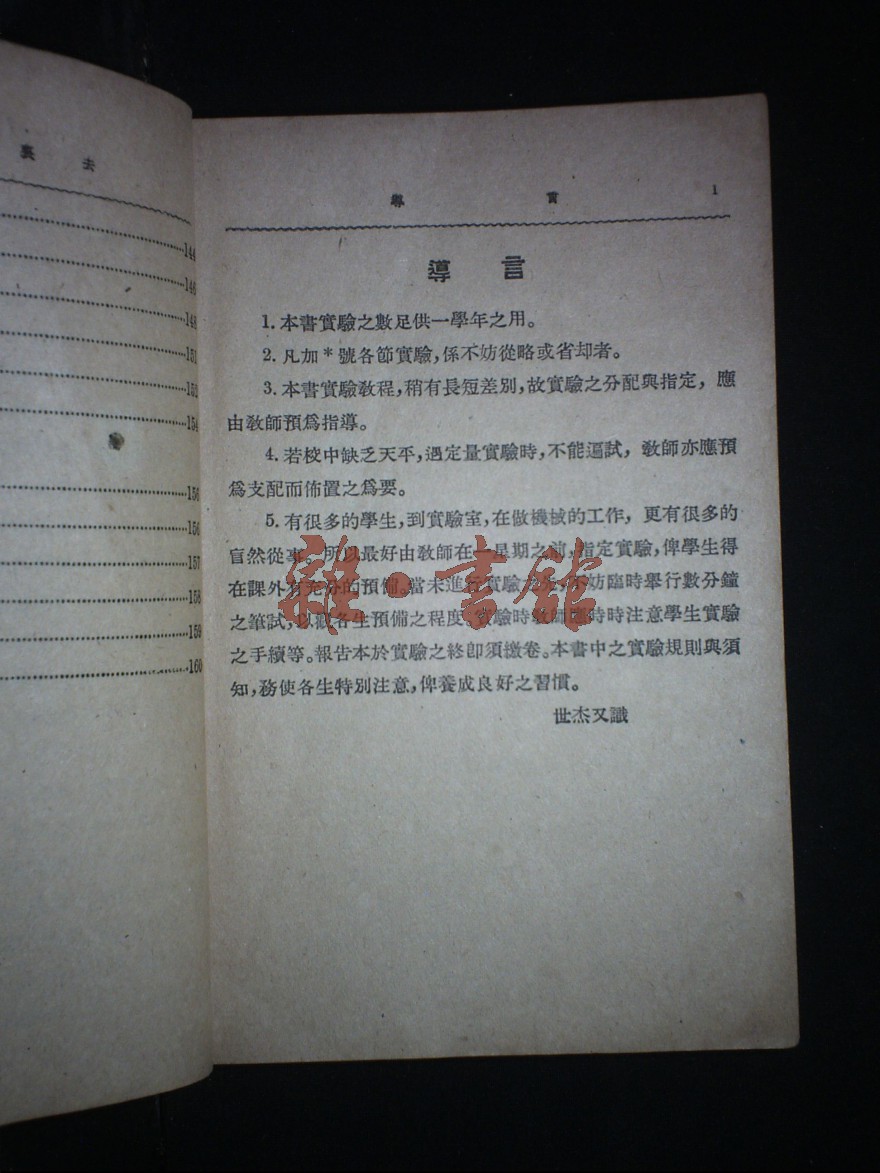 去
144
146
148
151
152
154
156
156
157
158
159
160
導言 1
導言
1. 本書實驗之數足供一學年之用。
2. 凡加*號各節實驗,係不妨從略或省却者。
3. 本書實驗教程,稍有長短差別,故實驗之分配與指定,應
由教師預爲指導。
4. 若校中缺乏天平,遇定量實驗時,不能逼試,教師亦應預
爲支配而佈置之爲要。
5. 有很多的學生,到實驗室,在做機械的工作,更有很多的
盲然從事。所以最好由教師在一星期之前,指定實驗,俾學生得
在課外有充分的預備。當未進行實驗之,不妨臨時舉行數分鐘
之筆試,以觀各生預備之程度。實驗時教師應時時注意學生實驗
之手續等。報告本於實驗之終卽須繳卷。本書中之實驗規則與須
知,務使各生特別注意,俾養成良好之習慣。
世杰又識
雜·書館